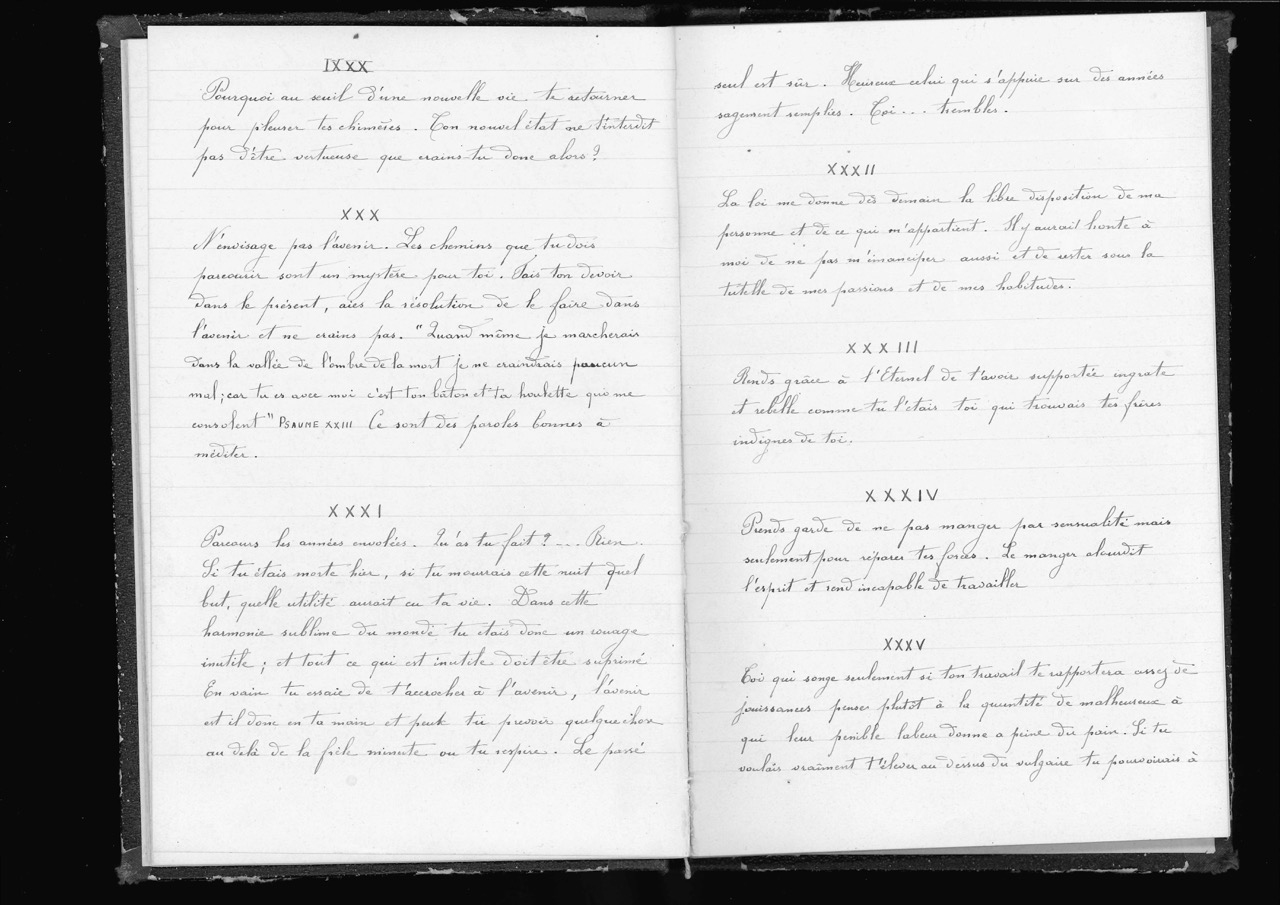 IXXX
Pourquoi au seuil d'une nouvelle vie te retourner
pour pleurer tes chimères. Ton nouvel état ne t'interdit
pas d'être vertueuse que crains-tu donc alors ?
XXX
N'envisage pas l'avenir. Les chemins que tu dois
parcourir sont un mystère pour toi. Fais ton devoir
dans le présent, aies la résolution de le faire dans
l'avenir et ne crains pas. "Quand même je marcherais
dans la vallée de l'ombre de la mort je ne craindrais aucun
mal; car tu es avec moi c'est ton bâton et ta houlette qui me
consolent" PSAUME XXIII Ce sont des paroles bonnes à
méditer.
XXXI
Parcours les années envolées. Qu'as tu fait ? ... Rien.
Si tu étais morte hier, si tu mourrais cette nuit quel
but, quelle utilité aurait eu ta vie. Dans cette
harmonie sublime du monde tu étais donc un rouage
inutile ; et tout ce qui est inutile doit être suprimé
En vain tu essaie de t'accrocher à l'avenir, l'avenir
est il donc en ta main et peut tu prevoir quelque chose
au delà de la frêle minute ou tu respire. Le passé
seul est sûr. Heureux celui qui s'appuie sur des années
sagement remplies. Toi ... trembles.
XXXII
La loi me donne dès demain la libre disposition de ma
personne et de ce qui m'appartient. Il y aurait honte à
moi de ne pas m'émanciper aussi et de rester sous la
tutelle de mes passions et de mes habitudes.
XXXIII
Rends grâce à l'Eternel de t'avoir supportée ingrate
et rebelle comme tu l'étais toi qui trouvais tes frères
indignes de toi.
XXXIV
Prends garde de ne pas manger par sensualité mais
seulement pour réparer tes forces. Le manger alourdit
l'esprit et rend incapable de travailler
XXXV
Toi qui songe seulement si ton travail te rapportera assez de
jouissances pense plutot à la quantité de malheureux à
qui leur penible labeur donne a peine du pain. Si tu
voulais vraiment t'élever au dessus du vulgaire tu pourvoirais à